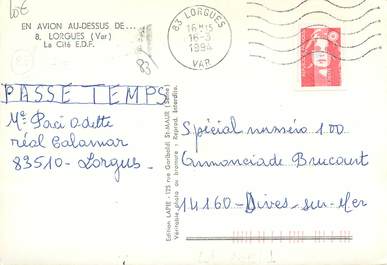 EN AVION AU-DESSUS DE...
8. LORGUES (Var)
La Cité E.D.F.
83 LORGUES
16H15
16-3
1994
VAR
83
PASSE TEMPS
Me Paci Odette
réal Calamar
83510 - Lorgues
Edition LAPIE - 125 rue Garibaldi St-MAUR (Seine)
Véritable photo au bromure - Reprod. interdite.
Spécial numéro 100
Annonciade Brucourt
14160 - Dives-sur-Mer